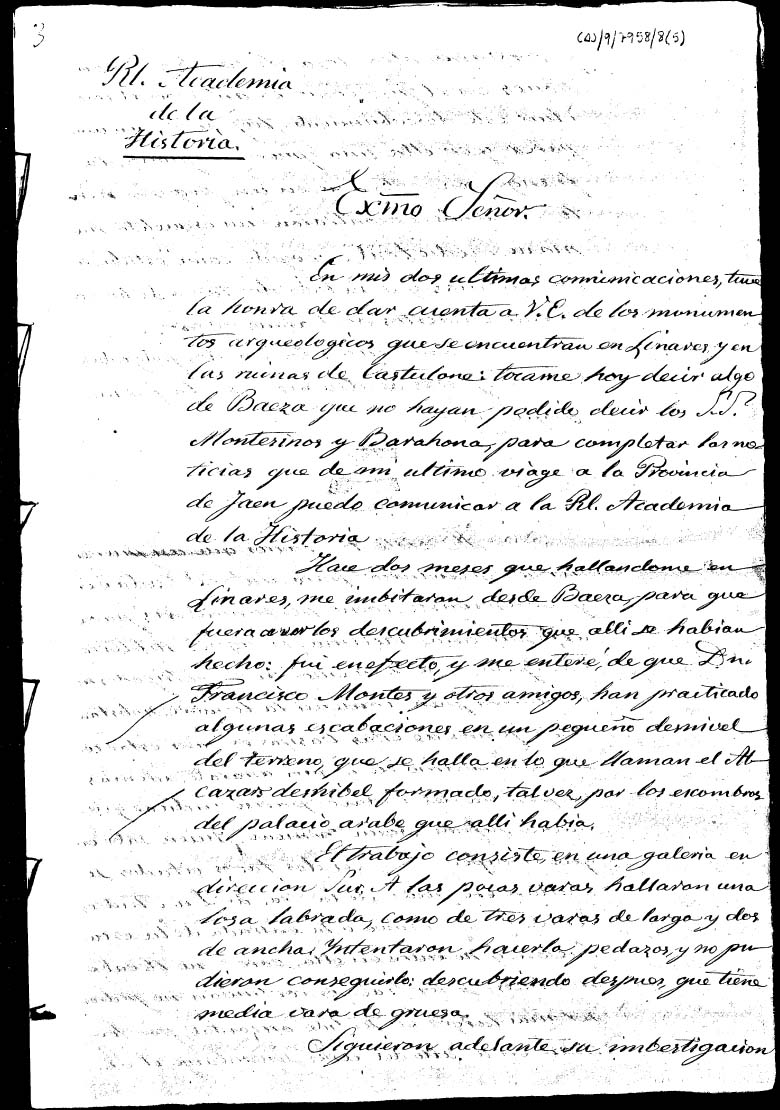 3
CAJ/9/7958/8(5)
Rl. Academia
de la
Historia.
Exmo Señor.
En mis dos ultimas comunicaciones, tuve
la honra de dar cuenta a V.E. de los monumen
tos arqueologicos que se encuentran en Linares, y en
las ruinas de Castulone: tócame hoy decir algo
de Baeza que no hayan podido decir los S.S.
Montesinos y Barahona, para completar las no-
ticias que de mi ultimo viage a la Provincia
de Jaen puedo comunicar a la Rl. Academia
de la Historia
Hace dos meses que hallandome en
Linares, me imbitaron desde Baeza, para que
fuera a ver los descubrimientos que alli se habian
hecho: fui en efecto, y me enteré, de que Dn.
Francisco Montes y otros amigos, han practicado
algunas escabaciones en un pequeño desnivel
del terreno, que se halla en lo que llaman el Al-
cazar: desnibel formado, tal vez, por los escombros
del palacio arabe que alli habia.
El trabajo consiste, en una galeria en
direccion Sur. A las pocas varas, hallaron una
losa labrada, como de tres varas de larga y dos
de ancha. Yntentaron hacerla pedazos, y no pu
dieron conseguirlo: descubriendo despues, que tiene
media vara de gruesa.
Siguieron adelante su imbestigacion